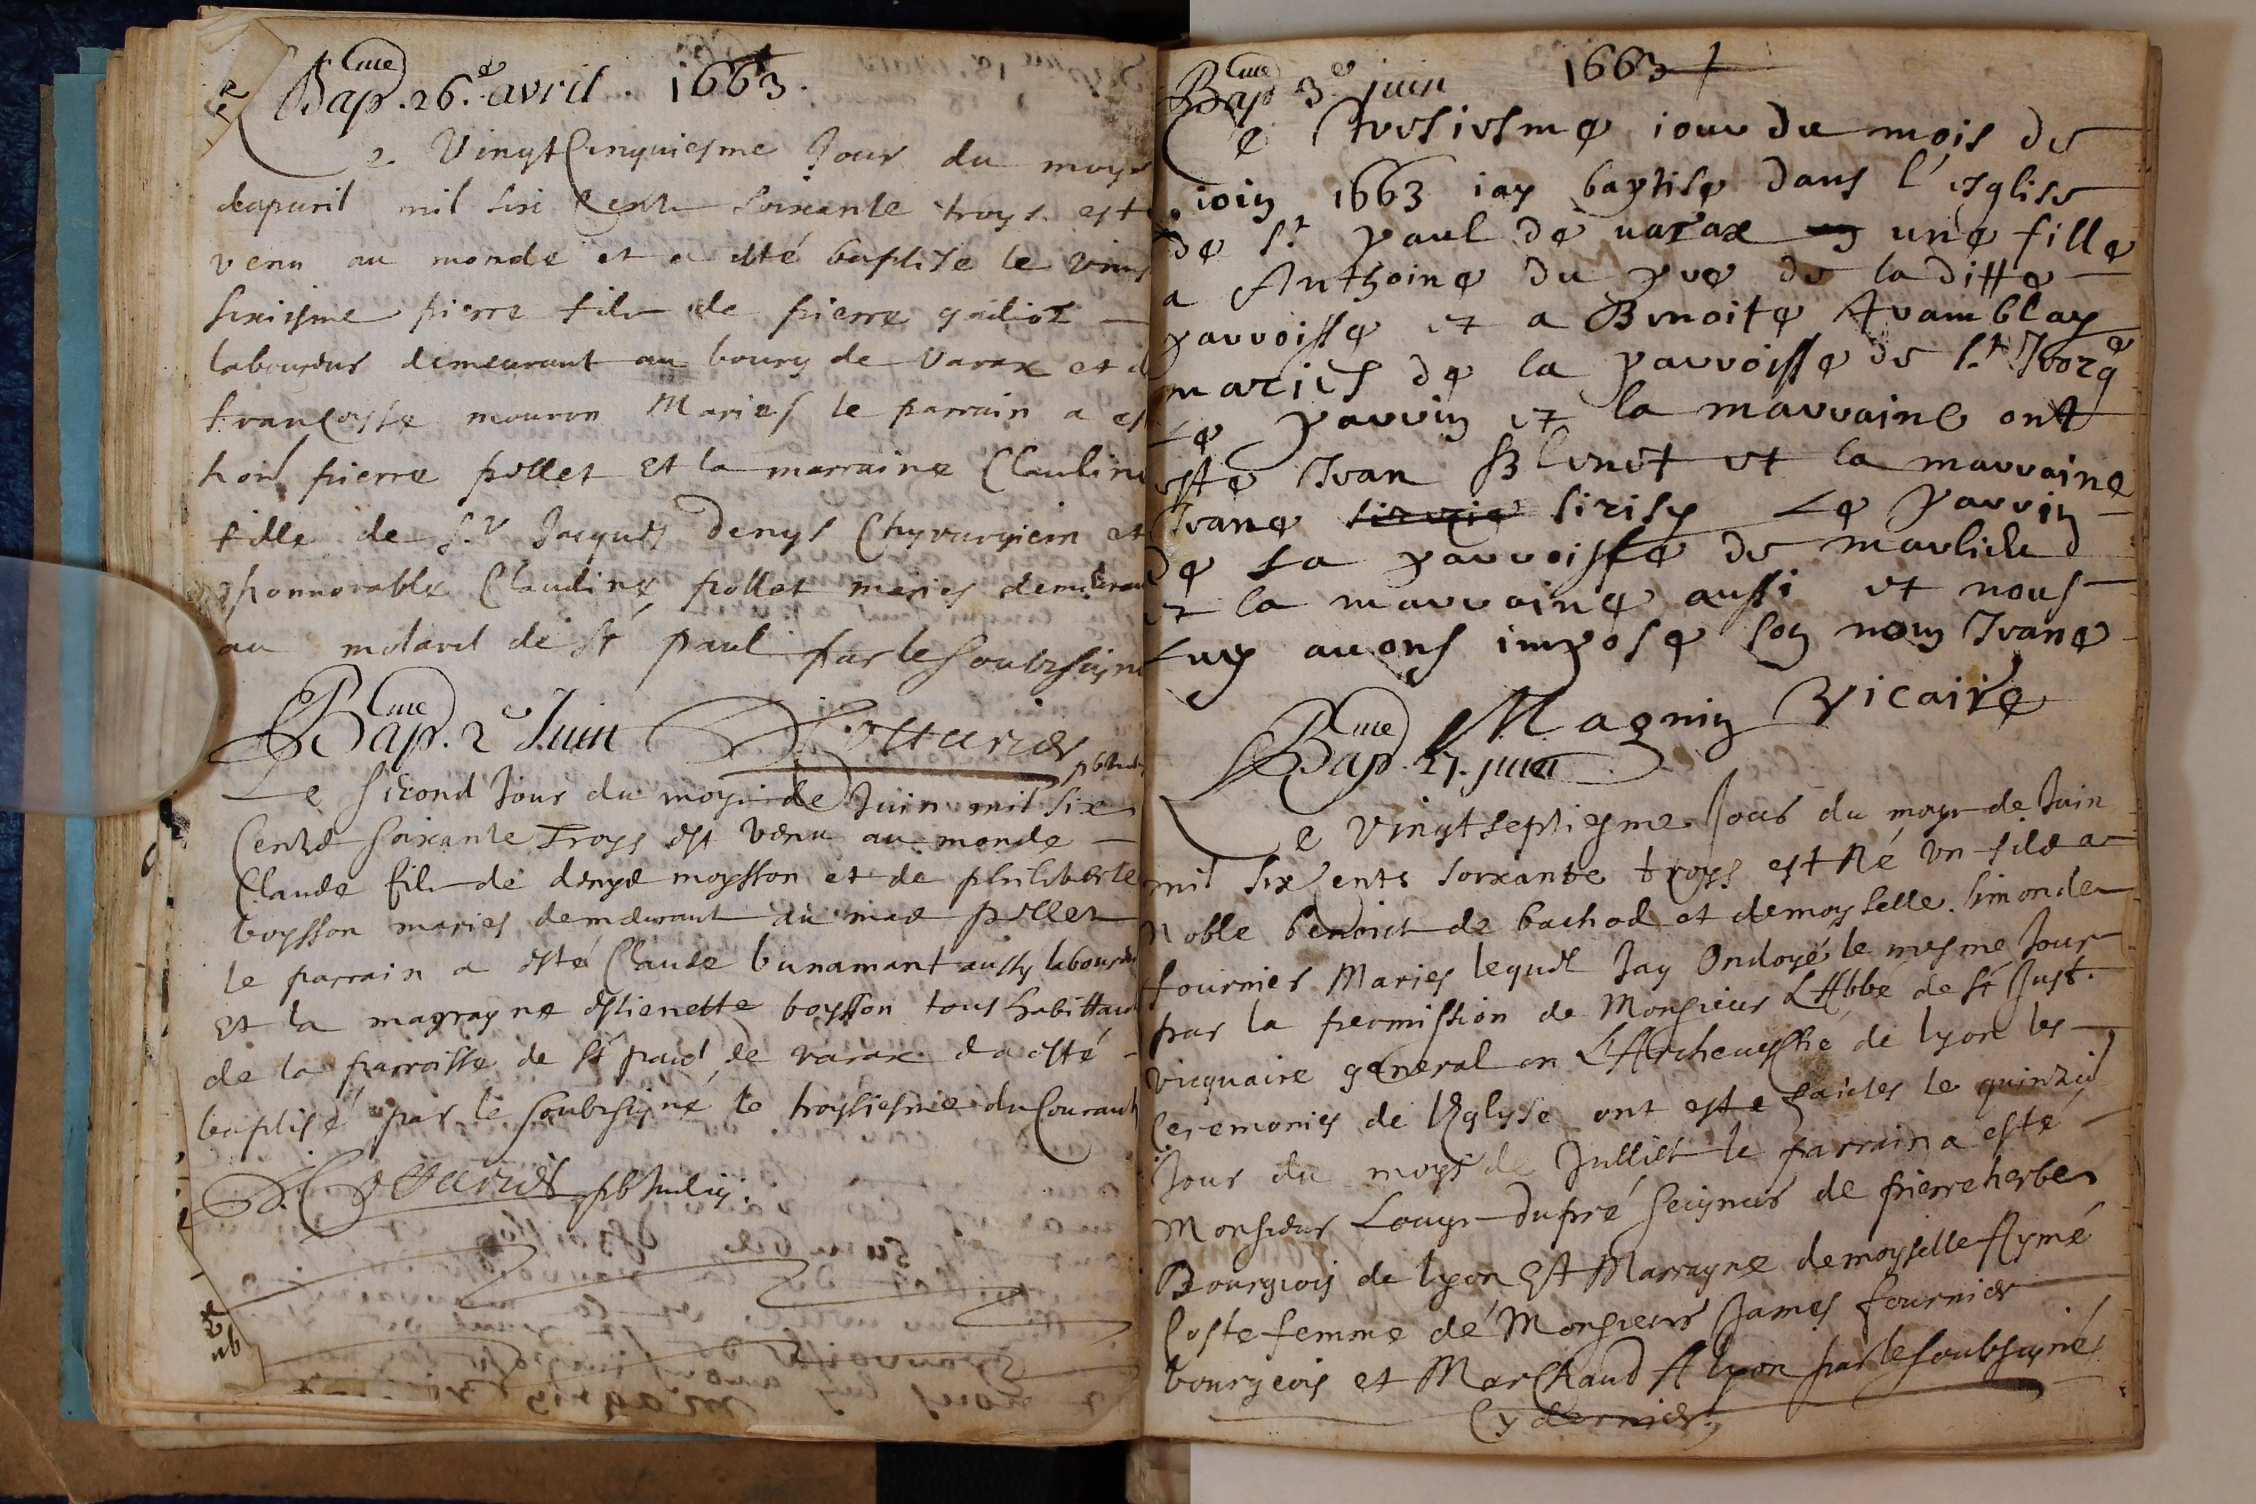 Bap.me 26.e avril. 1663.
Le Vingt Cinquiesme Jour du moys
dapuril mil six Cents soixante troys est
venu au monde et a esté baptise le vint
sixiesme pierre fils de pierre
laboureur demeurant au bourg de Varax et de
francoyse mouron Maries le parrain a esté
hon. pierre pollet Et la marraine Claudine
fille de Sr. Jacques Denys Chyrurgiem et
honnorable Claudine pollet maries demeurant
au molard de St paul par le soubzsigné
Bap.me 2e Juin
Le second Jour du moys de Juin mil six
Centz soixante Troys est venu au monde
Claude fils de denys moysson et de philiberte
boysson maries demeurant au mas pollet
le parrain a esté Claude bunamant aussy laboureur
Et la magrayne estienette boysson tous habittants
de la parroisse de St paul de varax & a esté
baptisé par le soubzsigné le troysiesme du Courant
1663
Bap.me 3e juin
Le troisiesme iour du mois de
ioin 1663 iay baptise dans l'esglise
de St paul de uarax une fille
a Anthoine du pre de la ditte
parroisse et a Benoite
maries de la parroisse de St
Le parrin et la marraine ont
este Jean Benot et la marraine
Jeane sirisy Le parrin
de La parroisse de marlieu
et la marraine aussi et nous
Luy auons impose son nom Jeane
Magnin Vicaire
Bap.me 27. juin
Le Vingt septiesme Jour du moys de Juin
mil six cents soixante troys est Né vn fils a
Noble benoict de bachod et demoyselle simonde
fournier Maries lequel Jay Ondoyé le mesme Jour
par la permission de Monsieur L'Abbé de St Just
vicquaire general en L'Archeuesché de lyon les
Ceremonies de l'Eglyse ont este faictes le quinzie
Jour du moys de Julliet le parrain a esté
Monsieur Louys dupré seigneur de pierreherbe
Bourgeois de lyon Et Marrayne demoyselle Aymé
Coste femme de Monsieur James fournier
bourgeois et Marchand A lyon par le soubsigné
Cy dernier